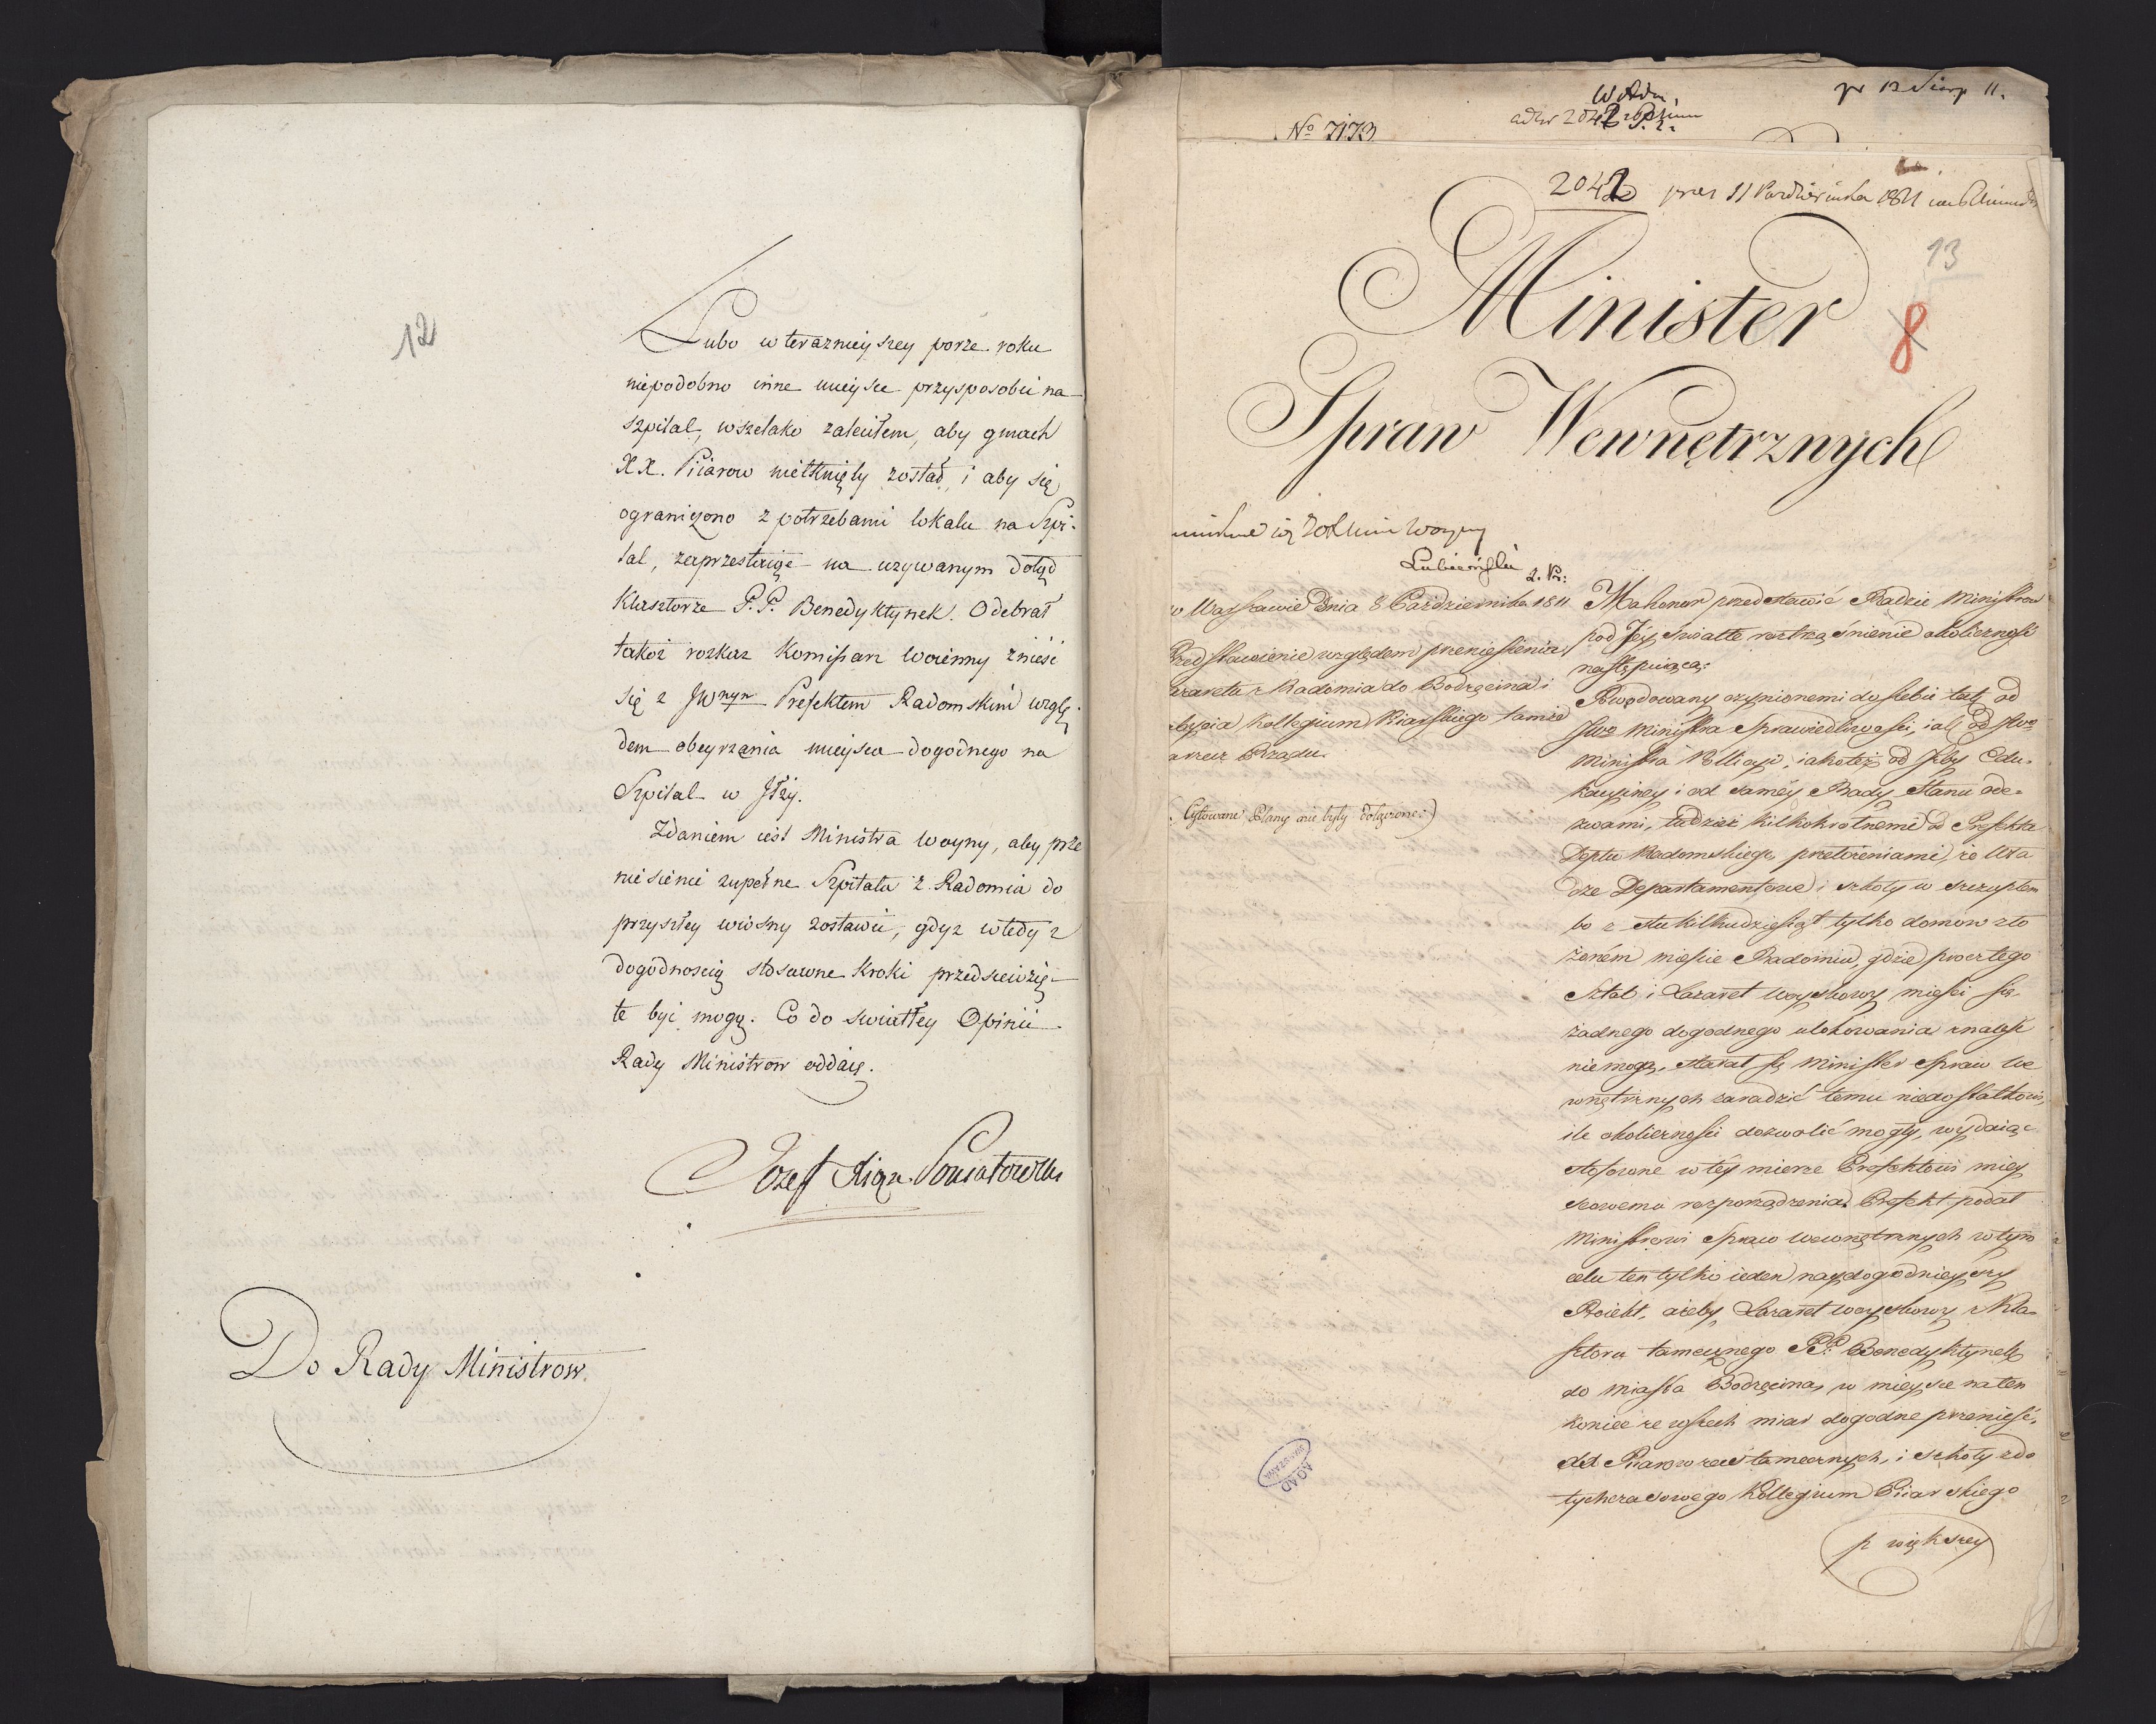 12
Lubo w terazniejszey porze roku
niepodobno inne mieysce przysposobić na
szpital, wszelako zaleciłem, aby gmach
XX. Piiarow nietknięty został, i aby się
ograniczono z potrzebami lokalu na Szpi-
tal, zaprzestaiąc na używanym dotąd
Klasztorze P.P. Benedyktynek. Odebrał
takoż rozkaz Komissarz Woienny znieść
się z JWnym Prefektem Radomskim wzglę-
dem obeyrzania mieysca dogodnego na
Szpital w Jłży.
Zdaniem iest Ministra Woyny, aby prze
niesienie zupełne Szpitala z Radomia do
przyszłey wiosny zostawić, gdyz wtedy z
dogodnoscią stosowne kroki przedsiewzię-
te być mogą. Co do swiatłey Opinii
Rady Ministrow oddaię.
Jozef Xiąże Poniatowski
Do Rady Ministrow.
pr 12 Sierp 11.
W Adm.
ad Nr 2042
No 7173
2042 prez 11 Pazdziernika 1811
13
8
Minister
Spraw Wewnętrznych
Woyny
Lubieński
w Warszawie Dnia 8 Pazdziernika 1811
Przedstawienie względem przeniesienia
Lazaretu z Radomia do Bodzęcina i
Kollegium Piiarskiego tamże
przez Rząd.
(: Cytowane Plany nie były dołączone :)
Ma honor przedstawić Radzie Ministrow
pod Jey swiatłe roztrząśnienie okoliczność
następuiącą:
Powodowany czynionemi do siebie tak od
JWo Ministra Sprawiedliwości, iak od JWo
Ministra Pollicyi, iakoteż od Jzby Edu-
kacyiney i od samey Rady Stanu ode-
zwami, tudzież kilkokrotnemi od Prefekta
Deptu Radomskiego przełożeniami, że Wła
dze Departamentowe i szkoły w szczupłem
bo z stu kilkudziesiąt tylko domow zło
żoném mieście Radomiu, gdzie procz tego
Sztab i Lazaret woyskowy mieści się
żadnego dogodnego ulokowania znaleść
niemogą, starał się Minister Spraw We
wnętrznych zaradzić temu niedostatkowi,
ile okoliczności dozwolić mogły, wydaiąc
stosowne w tey mierze Prefektowi miey
scowemu rozporządzenia. Prefekt podał
Ministrowi Spraw Wewnętrznych w tym
celu ten tylko ieden naydogodnieyszy
Proiekt, ażeby Lazaret woyskowy z Kla-
sztoru tamecznego PP: Benedyktynek
do miasta Bodzęcina, w mieysce na ten
koniec ze wszech miar dogodne przenieść,
dla Piiarow zaś tamecznych, i szkoły z do
tychczasowego Kollegium Piiarskiego
p większey
AGAD
WARSZAWA